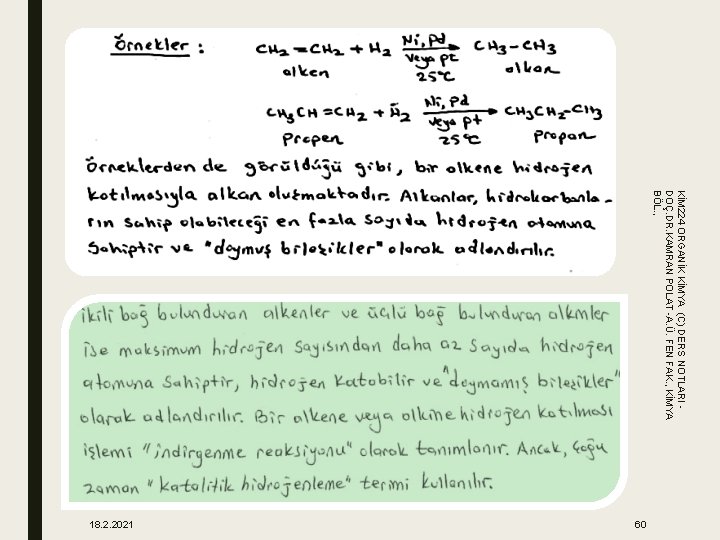 Örnekler :
CH2=CH2 + H2 Ni, Pd veya pt 25°C CH3-CH3
alken alkan
CH3CH=CH2 + H2 Ni, Pd veya pt 25°C CH3CH2-CH3
Propen propan
Örneklerden de görüldüğü gibi, bir alkene hidrojen
katılmasıyla alkan oluşmaktadır. Alkanlar, hidrokarbonla-
rın sahip olabileceği en fazla sayıda hidrojen atomuna
sahiptir ve "doymuş bileşikler" olarak adlandırılır.
ikili bağ bulunduran alkenler ve üçlü bağ bulunduran alkinler
ise maksimum hidrojen sayısından daha az sayıda hidrojen
atomuna sahiptir, hidrojen katabilir ve "doymamış bileşikler"
olarak adlandırılır. Bir alkene veya alkine hidrojen katılması
işlemi "indirgenme reaksiyonu" olarak tanımlanır. Ancak, çoğu
zaman "katalitik hidrojenleme" termi kullanılır.
KİM224 ORGANİK KİMYA (C) DERS NOTLARI -
DOÇ.DR.KAMRAN POLAT -A.Ü. FEN FAK., KİMYA
BÖL.,
18.2.2021
60